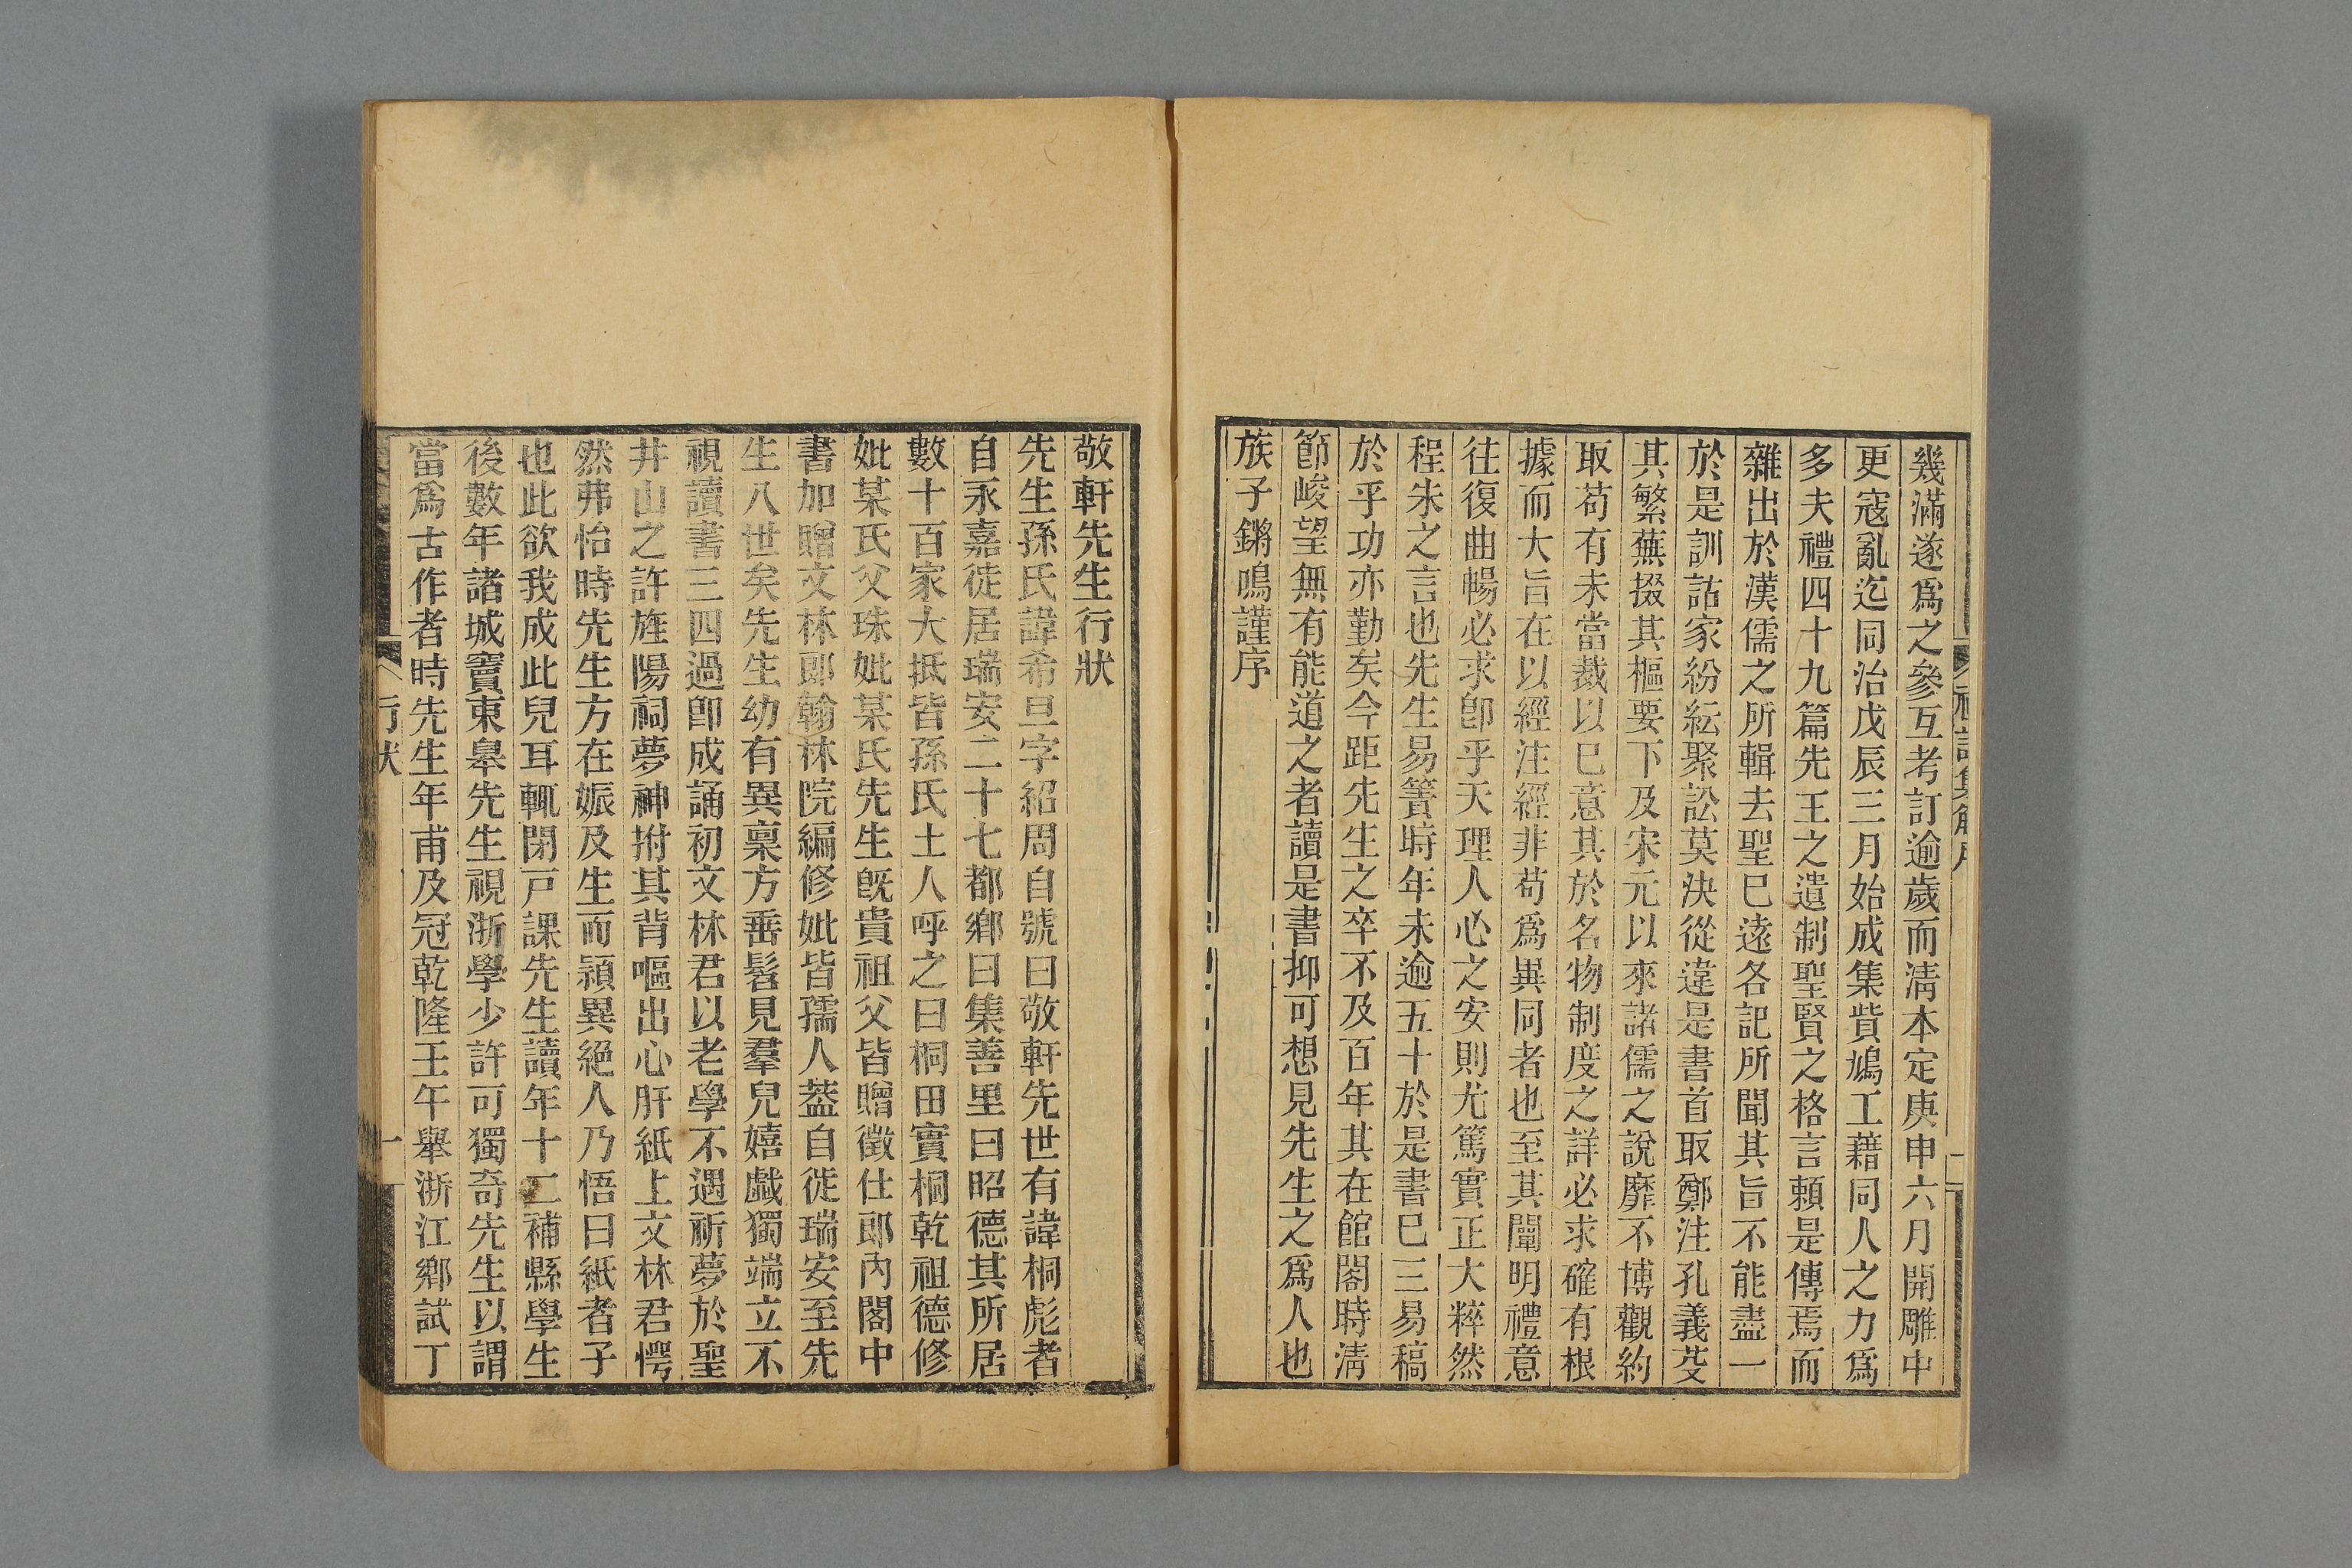 幾滿遂爲之參互考訂逾歲而淸本定庚申六月開雕中
更寇亂迄同治戊辰三月始成集貲鳩工藉同人之力爲
多夫禮四十九篇先王之遺制聖賢之格言賴是傳焉而
雜出於漢儒之所輯去聖已遠各記所聞其旨不能盡一
於是訓詁家紛紜聚訟莫決從違是書首取鄭注孔義芟
其繁蕪掇其樞要下及宋元以來諸儒之說靡不博觀約
取苟有未當裁以已意其於名物制度之詳必求確有根
據而大旨在以經注經非苟爲異同者也至其闡明禮意
往復曲暢必求卽乎天理人心之安則尤篤實正大粹然
程朱之言也先生易簀時年未逾五十於是書已三易稿
於乎功亦勤矣今距先生之卒不及百年其在館閣時淸
節峻望無有能道之者讀是書抑可想見先生之爲人也
族子鏘鳴謹序
敬軒先生行狀
先生孫氏諱希旦字紹周自號曰敬軒先世有諱桐彪者
自永嘉徙居瑞安二十七都鄉曰集善里曰昭德其所居
數十百家大抵皆孫氏土人呼之曰桐田實桐乾祖德修
妣某氏父珠妣某氏先生旣貴祖父皆贈徵仕郎內閣中
書加贈文林郎翰林院編修妣皆孺人葢自徙瑞安至先
生八世矣先生幼有異稟方垂髫見羣兒嬉戲獨端立不
視讀書三四過卽成誦初文林君以老學不遇祈夢於聖
井山之許旌陽祠夢神拊其背嘔出心肝紙上文林君愕
然弗怡時先生方在娠及生而穎異絕人乃悟曰紙者子
也此欲我成此兒耳輒閉戸課先生讀年十二補縣學生
後數年諸城竇東皋先生視浙學少許可獨奇先生以謂
當爲古作者時先生年甫及冠乾隆壬午舉浙江鄉試丁
行狀
一